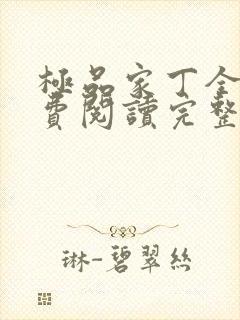 極品家丁全
費閱讀完整
琳-碧翠絲